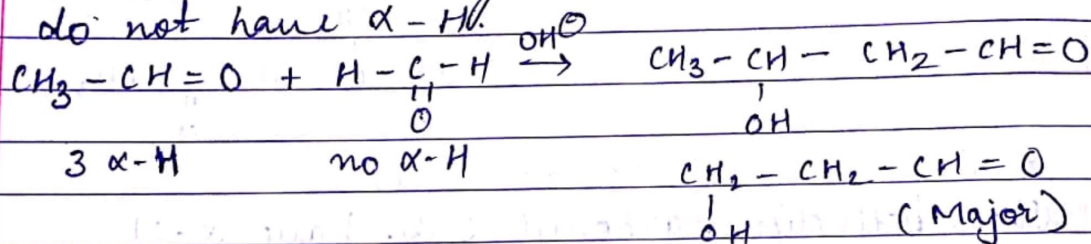 do not have α-H.
CH₃ - CH = O + H - C - H OH⊖ → CH₃ - CH - CH₂ - CH = O
|| |
O OH
3 α-H no α-H CH₂ - CH₂ - CH = O
|
OH (Major)